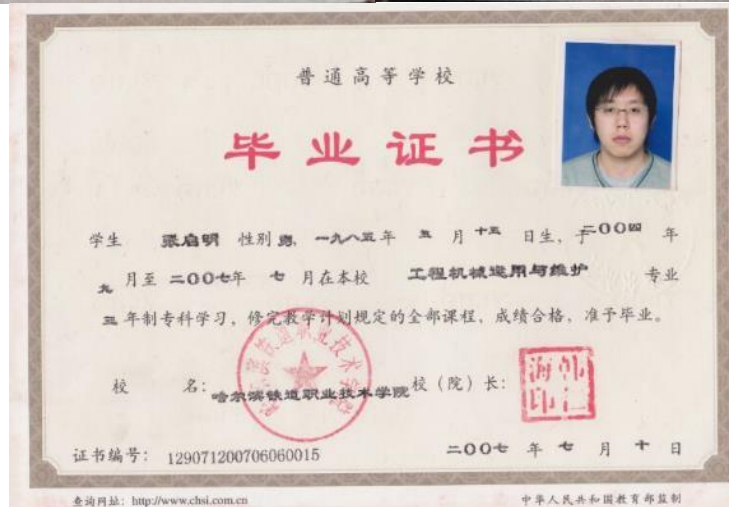 普通高等学校
毕业证书
学生 张启明 性别 男, 一九八五年 五 月 十五 日生, 于 二00四 年
九 月至 二00七年 七 月在本校 工程机械运用与维护 专业
三 年制专科学习, 修完教学计划规定的全部课程, 成绩合格, 准予毕业。
校 名: 哈尔滨铁道职业技术学院 校 (院) 长:
证书编号: 129071200706060015 二00七 年 七 月 十 日
查询网址: http://www.chsi.com.cn 中华人民共和国教育部监制